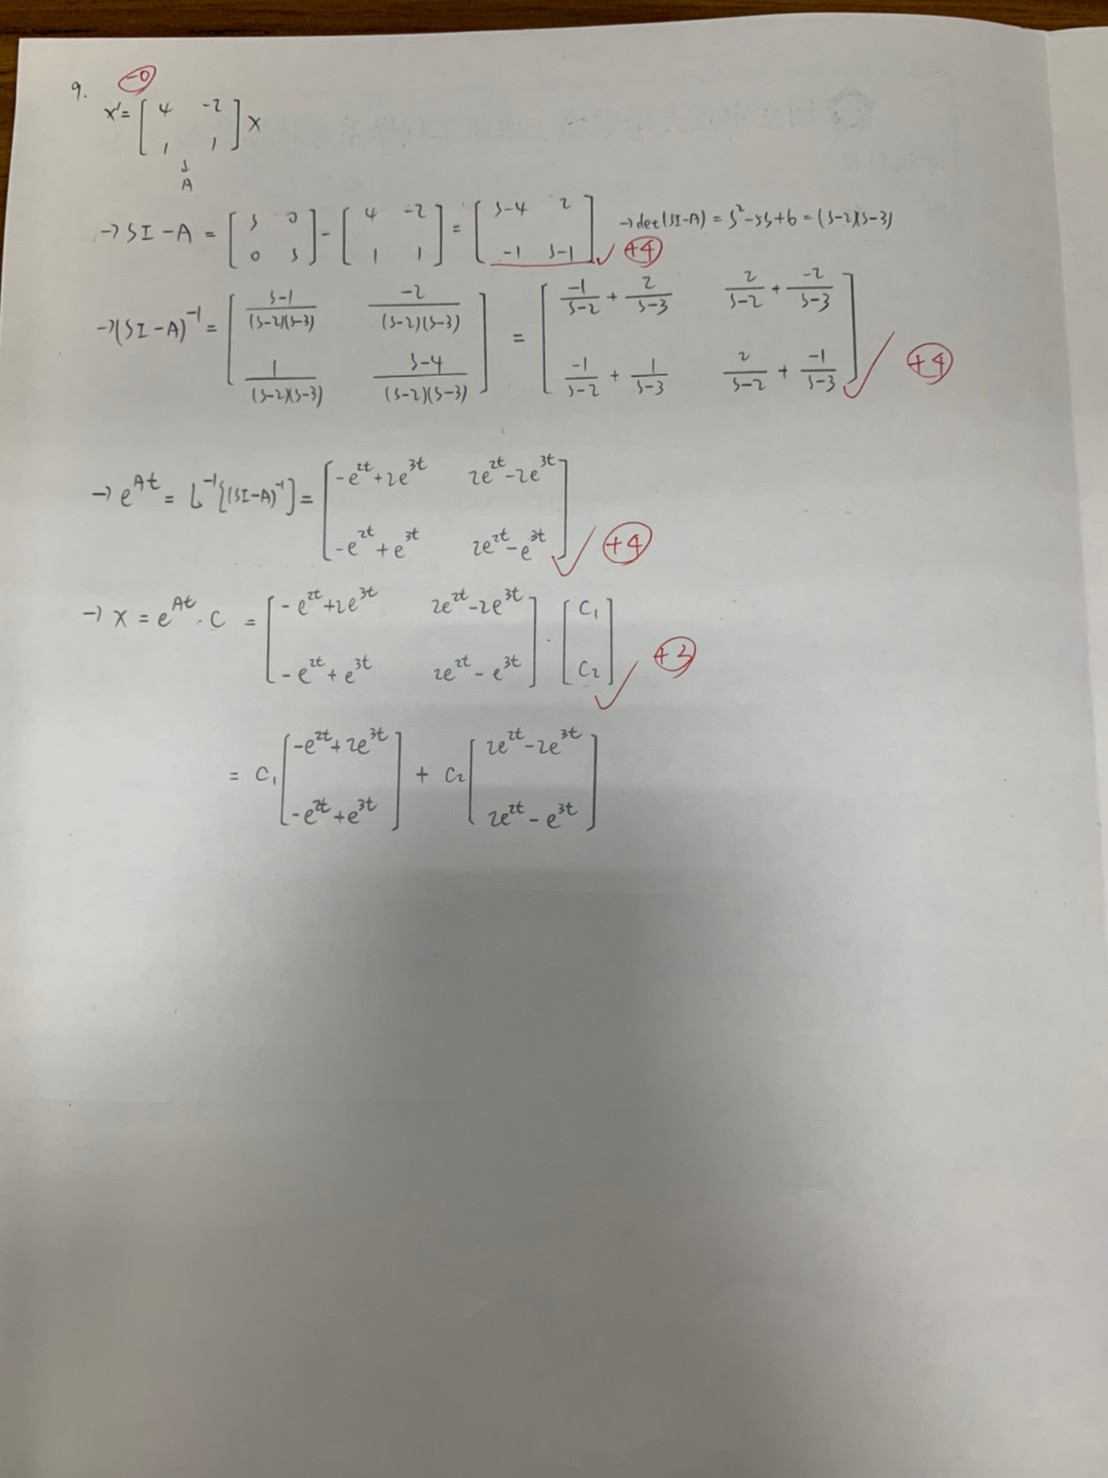 9. -0
x' = [ 4 -2 ; 1 1 ] x
↓
A
→ sI - A = [ s 0 ; 0 s ] - [ 4 -2 ; 1 1 ] = [ s-4 2 ; -1 s-1 ] ✓ +4 → det(sI-A) = s² - 5s + 6 = (s-2)(s-3)
→ (sI-A)⁻¹ = [ (s-1)/((s-2)(s-3)) -2/((s-2)(s-3)) ; 1/((s-2)(s-3)) (s-4)/((s-2)(s-3)) ] = [ -1/(s-2) + 2/(s-3) 2/(s-2) + -2/(s-3) ; -1/(s-2) + 1/(s-3) 2/(s-2) + -1/(s-3) ] ✓ +4
→ e^(At) = L⁻¹{(sI-A)⁻¹} = [ -e^(2t) + 2e^(3t) 2e^(2t) - 2e^(3t) ; -e^(2t) + e^(3t) 2e^(2t) - e^(3t) ] ✓ +4
→ x = e^(At) · C = [ -e^(2t) + 2e^(3t) 2e^(2t) - 2e^(3t) ; -e^(2t) + e^(3t) 2e^(2t) - e^(3t) ] · [ C₁ ; C₂ ] ✓ +3
= C₁ [ -e^(2t) + 2e^(3t) ; -e^(2t) + e^(3t) ] + C₂ [ 2e^(2t) - 2e^(3t) ; 2e^(2t) - e^(3t) ]